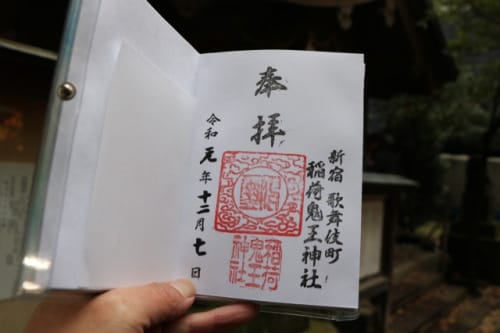 奉拝
新宿 歌舞伎町
稲荷鬼王神社
令和元年十二月七日
稲荷
鬼王
神社